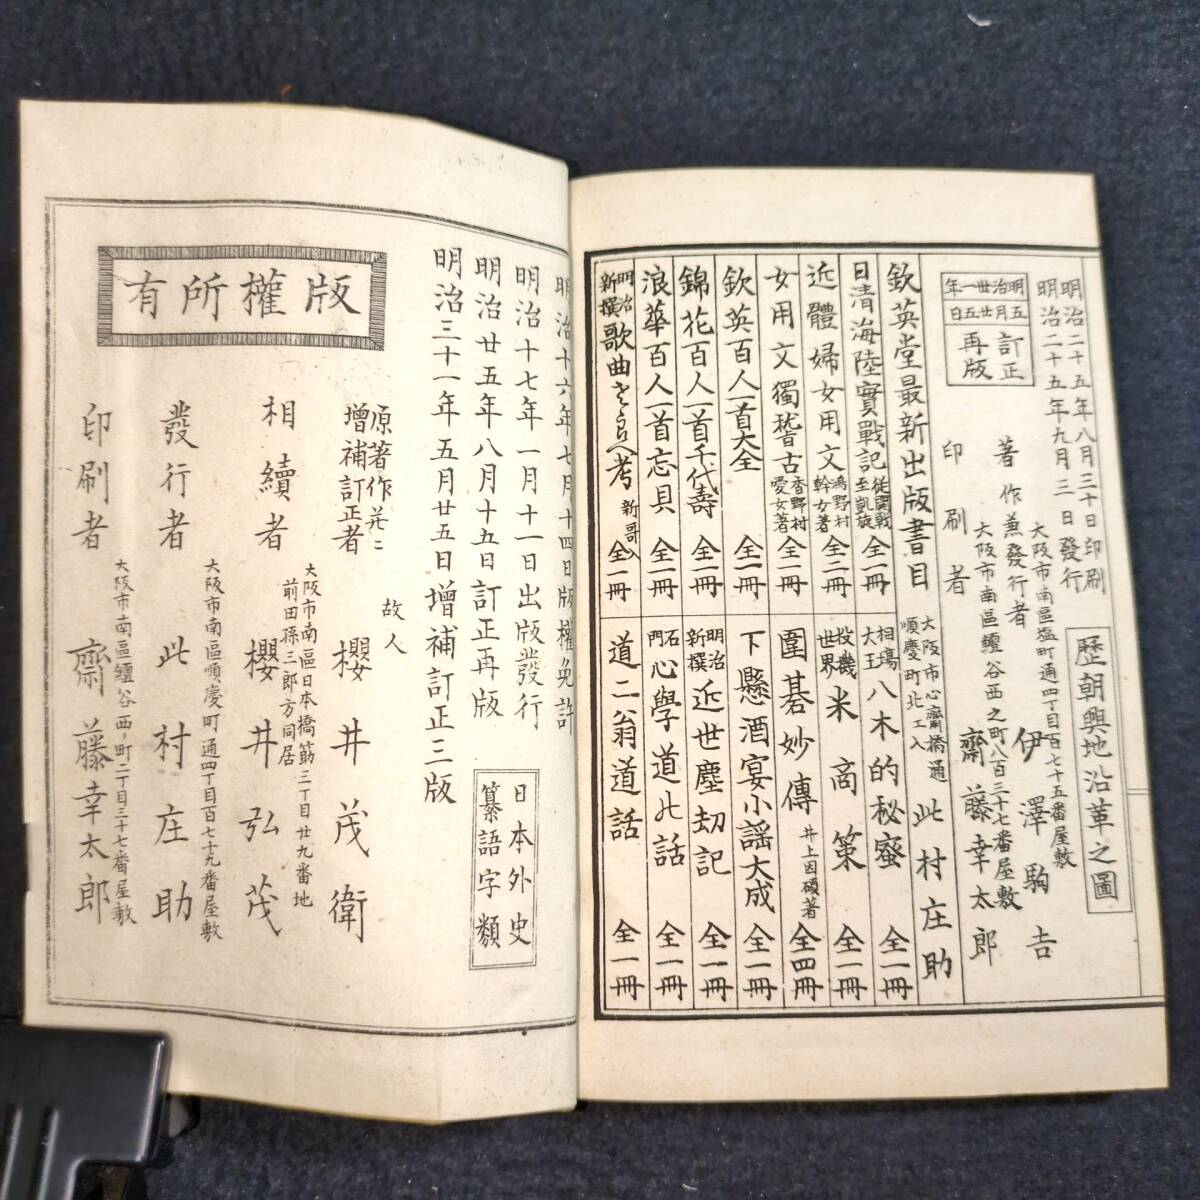 歷朝輿地沿革之圖
明治二十五年八月三十日印刷
明治二十五年九月三日發行
明治卅一年
五月廿五日
訂正
再版
大阪市南區鹽町通四丁目百七十五番屋敷
著作兼發行者 伊澤駒吉
大阪市南區鰻谷西之町八百三十七番屋敷
印刷者 齋藤幸太郎
欽英堂最新出版書目
大阪市心齋橋通
順慶町北エ入
此村庄助
日清海陸實戰記 從開戰至凱旋 全一冊
近體婦女用文 鴻野村幹女著 全二冊
女用文獨稽古 香野村愛女著 全一冊
欽英百人一首大全 全一冊
錦花百人一首千代壽 全一冊
浪華百人一首忘貝 全一冊
明治新撰歌曲さらへ考 新哥入 全一冊
相塲大王八木的秘蜜 全一冊
投機世界米商策 全一冊
圍碁妙傳 井上因碩著 全四冊
下懸酒宴小謠大成 全一冊
明治新撰近世塵刧記 全一冊
石門心學道此話 全一冊
道二翁道話 全一冊
明治十六年七月十四日版權免許
明治十七年一月十一日出版發行
明治廿五年八月十五日訂正再版
明治三十一年五月廿五日增補訂正三版
日本外史
纂語字類
原著作者并ニ
增補訂正者
故人
櫻井茂衛
大阪市南區日本橋筋三丁目廿九番地
前田孫三郎方同居
相續者 櫻井弘茂
大阪市南區順慶町通四丁目百七十九番屋敷
發行者 此村庄助
大阪市南區鰻谷西ノ町二丁目三十七番屋敷
印刷者 齋藤幸太郎
版權所有